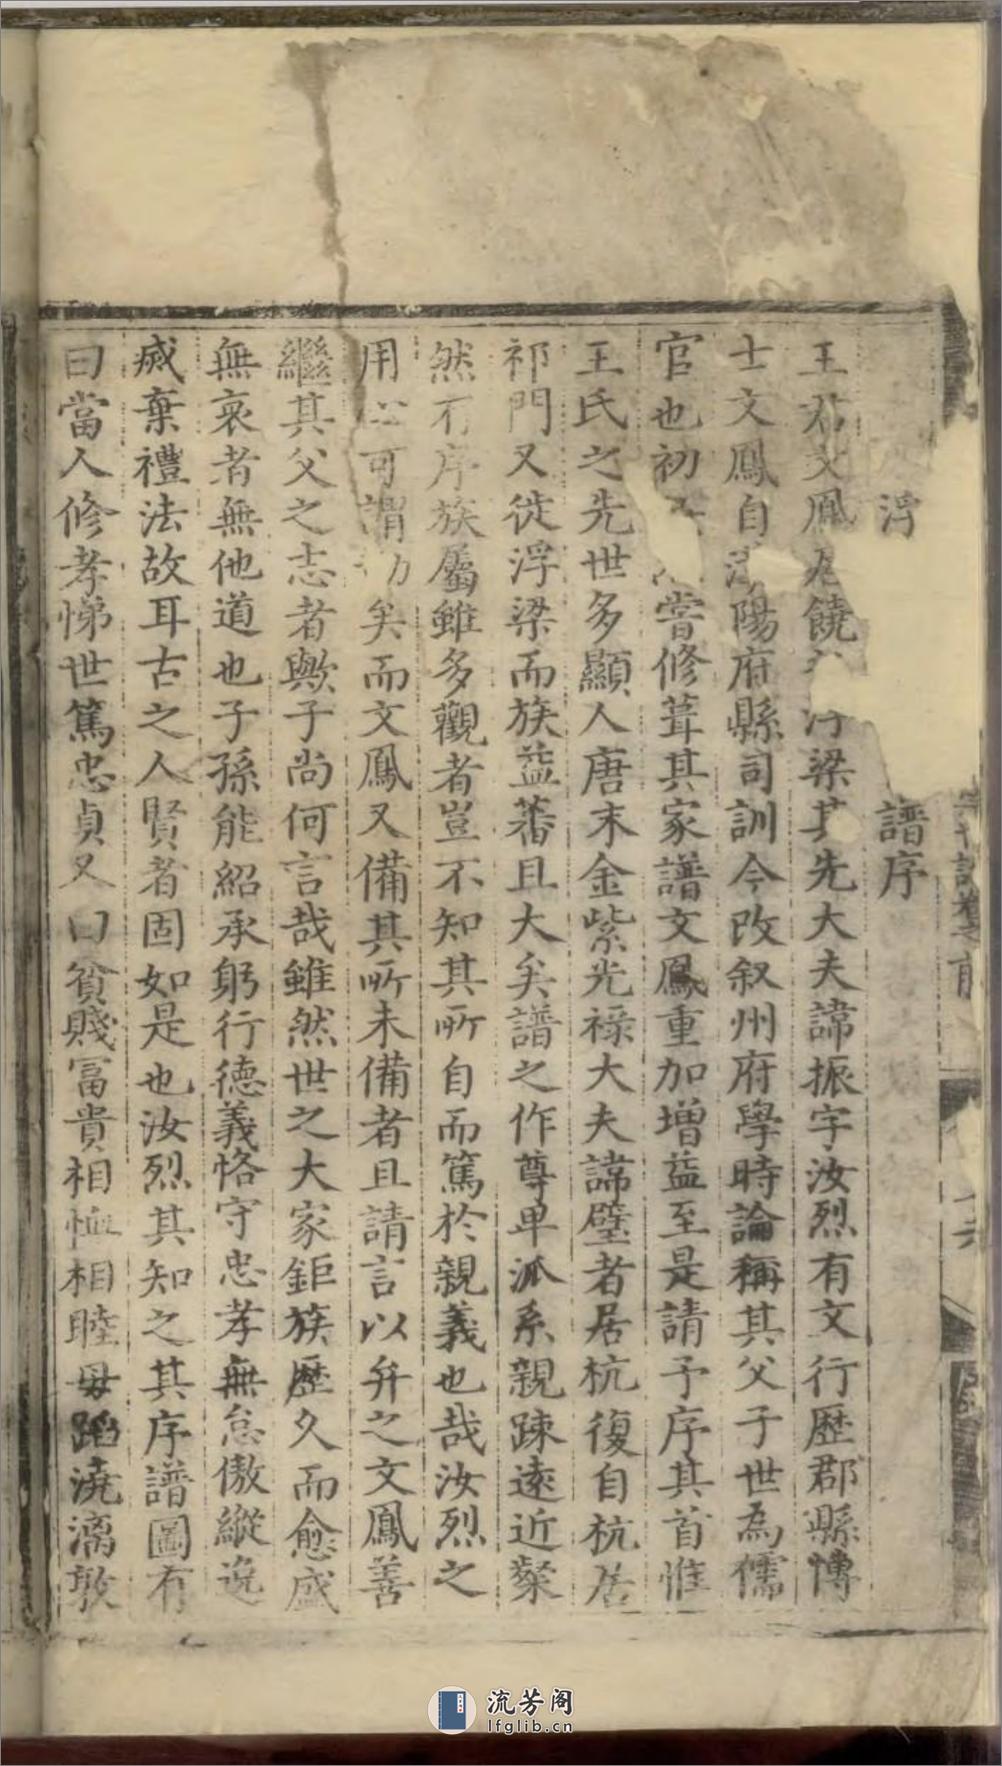 浮譜序
王君文鳳居饒浮梁其先大夫諱振字汝烈有文行歷郡縣博
士文鳳自陽府縣司訓今改叙州府學時論稱其父子世為儒
官也初嘗修葺其家譜文鳳重加增益至是請予序其首惟
王氏之先世多顯人唐末金紫光祿大夫諱壁者居杭復自杭居
祁門又徙浮梁而族益蕃且大矣譜之作尊卑派系親踈遠近粲
然有序族屬雖多觀者豈不知其所自而篤於親義也哉汝烈之
用心可謂矣而文鳳又備其所未備者且請言以弁之文鳳善
繼其父之志者歟予尚何言哉雖然世之大家鉅族歷久而愈盛
無衰者無他道也子孫能紹承躬行德義恪守忠孝無怠傲縱逸
威棄禮法故耳古之人賢者固如是也汝烈其知之其序譜圖有
曰當人修孝悌世篤忠貞又曰貧賤冨貴相恤相睦毋蹈澆漓敦
流芳阁
lfglib.cn